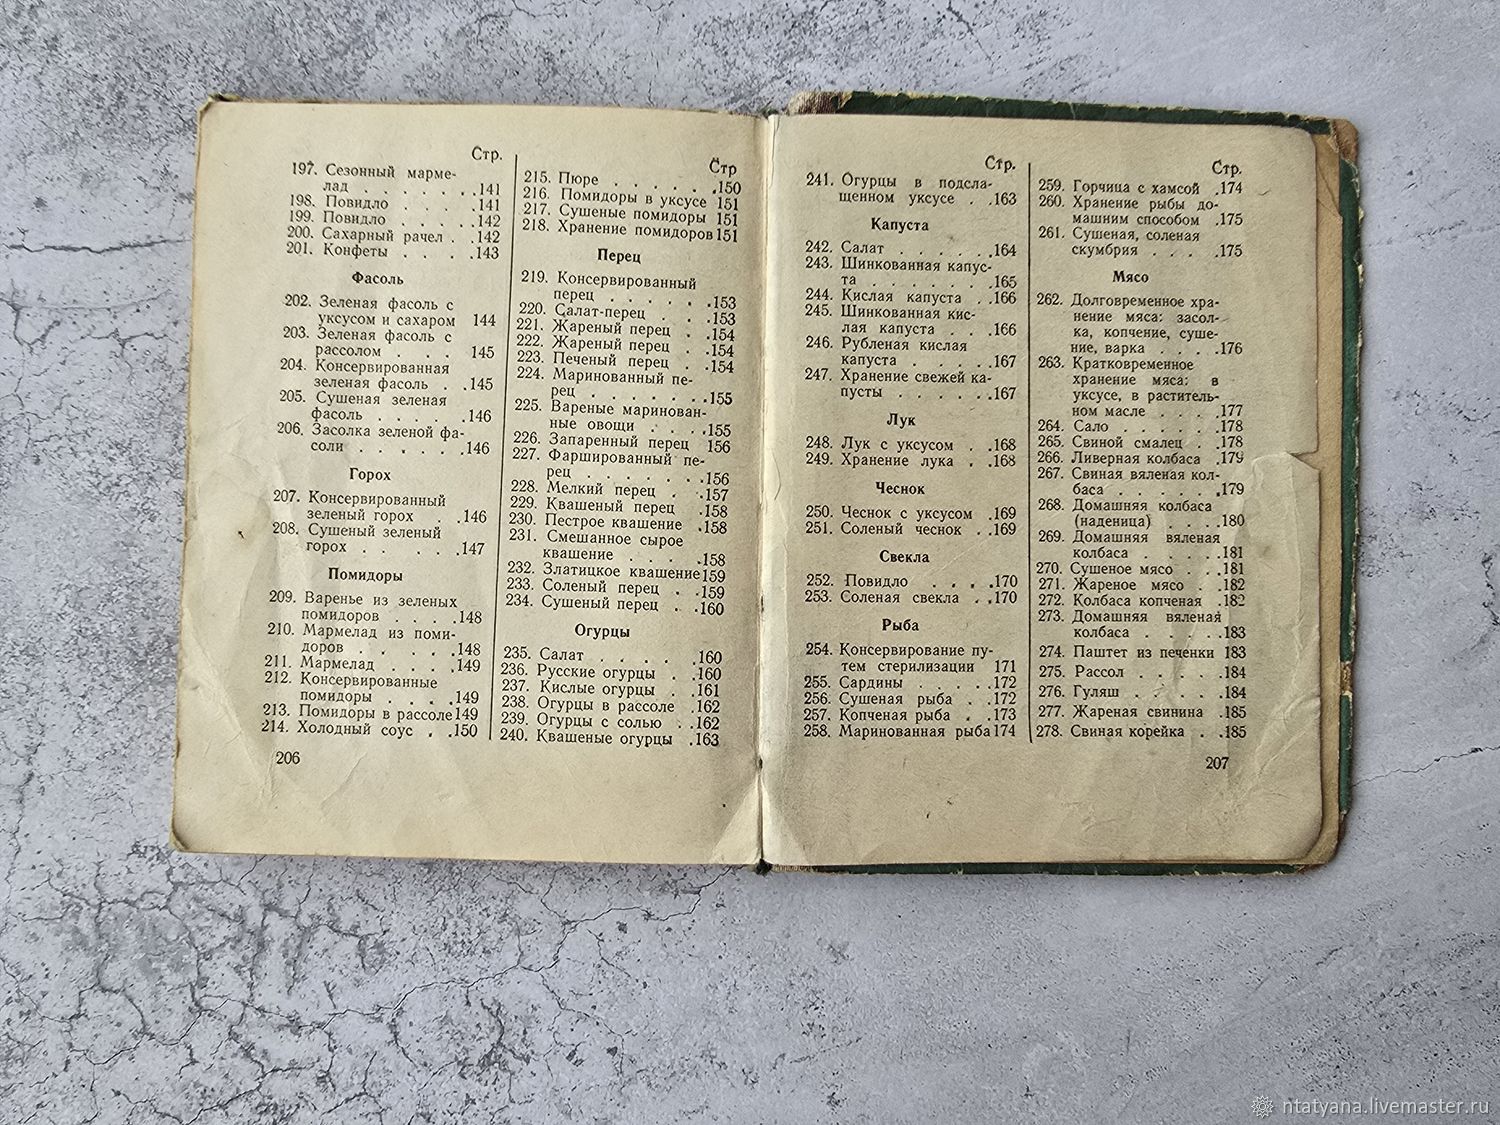 Стр.
197. Сезонный марме-
лад . . . . . .141
198. Повидло . . . .141
199. Повидло . . . .142
200. Сахарный рачел . .142
201. Конфеты . . . .143
Фасоль
202. Зеленая фасоль с
уксусом и сахаром 144
203. Зеленая фасоль с
рассолом . . . 145
204. Консервированная
зеленая фасоль . .145
205. Сушеная зеленая
фасоль . . . . .146
206. Засолка зеленой фа-
соли . . . . . .146
Горох
207. Консервированный
зеленый горох . .146
208. Сушеный зеленый
горох . . . . .147
Помидоры
209. Варенье из зеленых
помидоров . . . .148
210. Мармелад из поми-
доров . . . . .148
211. Мармелад . . . .149
212. Консервированные
помидоры . . . .149
213. Помидоры в рассоле149
214. Холодный соус . .150
206
Стр
215. Пюре . . . . . .150
216. Помидоры в уксусе 151
217. Сушеные помидоры 151
218. Хранение помидоров151
Перец
219. Консервированный
перец . . . . . .153
220. Салат-перец . . .153
221. Жареный перец . .154
222. Жареный перец . .154
223. Печеный перец . .154
224. Маринованный пе-
рец . . . . . . .155
225. Вареные маринован-
ные овощи . . . .155
226. Запаренный перец 156
227. Фаршированный пе-
рец . . . . . . .156
228. Мелкий перец . .157
229. Квашеный перец .158
230. Пестрое квашение .158
231. Смешанное сырое
квашение . . . .158
232. Златицкое квашение159
233. Соленый перец . .159
234. Сушеный перец . .160
Огурцы
235. Салат . . . . .160
236. Русские огурцы . .160
237. Кислые огурцы . .161
238. Огурцы в рассоле .162
239. Огурцы с солью . .162
240. Квашеные огурцы .163
Стр.
241. Огурцы в подсла-
щенном уксусе . .163
Капуста
242. Салат . . . . . .164
243. Шинкованная капус-
та . . . . . . .165
244. Кислая капуста . .166
245. Шинкованная кис-
лая капуста . . .166
246. Рубленая кислая
капуста . . . . .167
247. Хранение свежей ка-
пусты . . . . . .167
Лук
248. Лук с уксусом . .168
249. Хранение лука . .168
Чеснок
250. Чеснок с уксусом .169
251. Соленый чеснок . .169
Свекла
252. Повидло . . . .170
253. Соленая свекла . .170
Рыба
254. Консервирование пу-
тем стерилизации 171
255. Сардины . . . . .172
256. Сушеная рыба . .172
257. Копченая рыба . .173
258. Маринованная рыба174
Стр.
259. Горчица с хамсой .174
260. Хранение рыбы до-
машним способом .175
261. Сушеная, соленая
скумбрия . . . .175
Мясо
262. Долговременное хра-
нение мяса: засол-
ка, копчение, суше-
ние, варка . . . .176
263. Кратковременное
хранение мяса: в
уксусе, в раститель-
ном масле . . . .177
264. Сало . . . . . .178
265. Свиной смалец . .178
266. Ливерная колбаса .179
267. Свиная вяленая кол-
баса . . . . . .179
268. Домашняя колбаса
(наденица) . . . .180
269. Домашняя вяленая
колбаса . . . . .181
270. Сушеное мясо . . .181
271. Жареное мясо . .182
272. Колбаса копченая .182
273. Домашняя вяленая
колбаса . . . . .183
274. Паштет из печенки 183
275. Рассол . . . . .184
276. Гуляш . . . . .184
277. Жареная свинина .185
278. Свиная корейка . .185
207
ntatyana.livemaster.ru